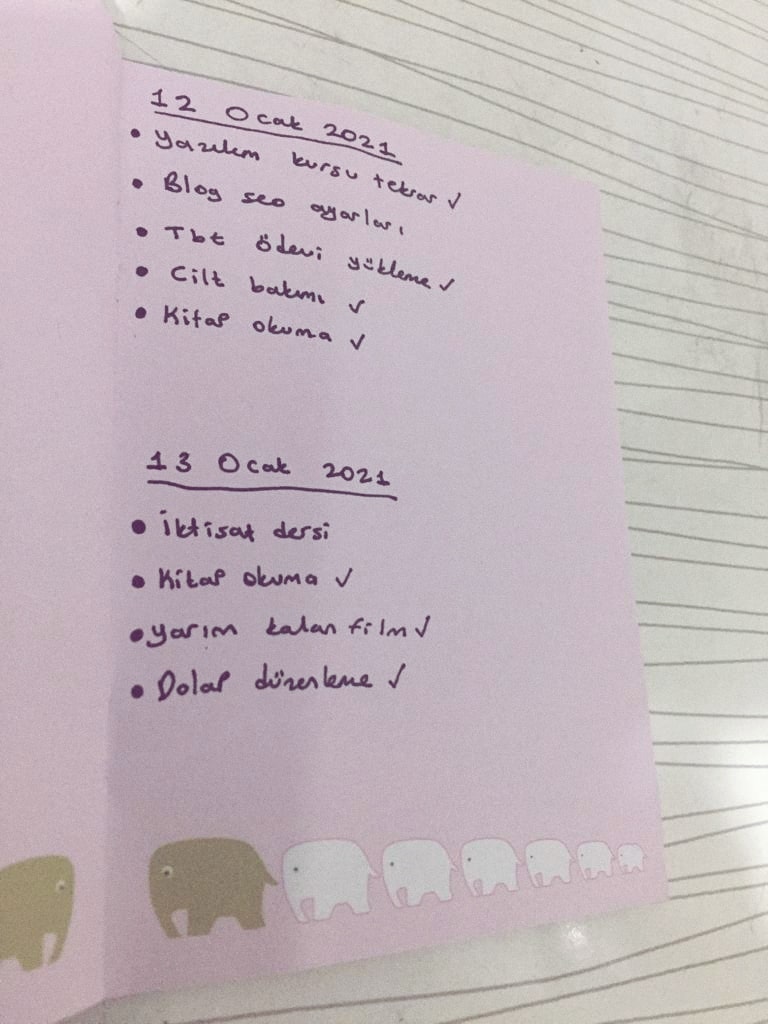 12 Ocak 2021
• Yazılım kursu tekrar ✓
• Blog seo ayarları
• Tbt ödevi yükleme ✓
• Cilt bakımı ✓
• Kitap okuma ✓
13 Ocak 2021
• İktisat dersi
• Kitap okuma ✓
• yarım kalan film ✓
• Dolap düzenleme ✓